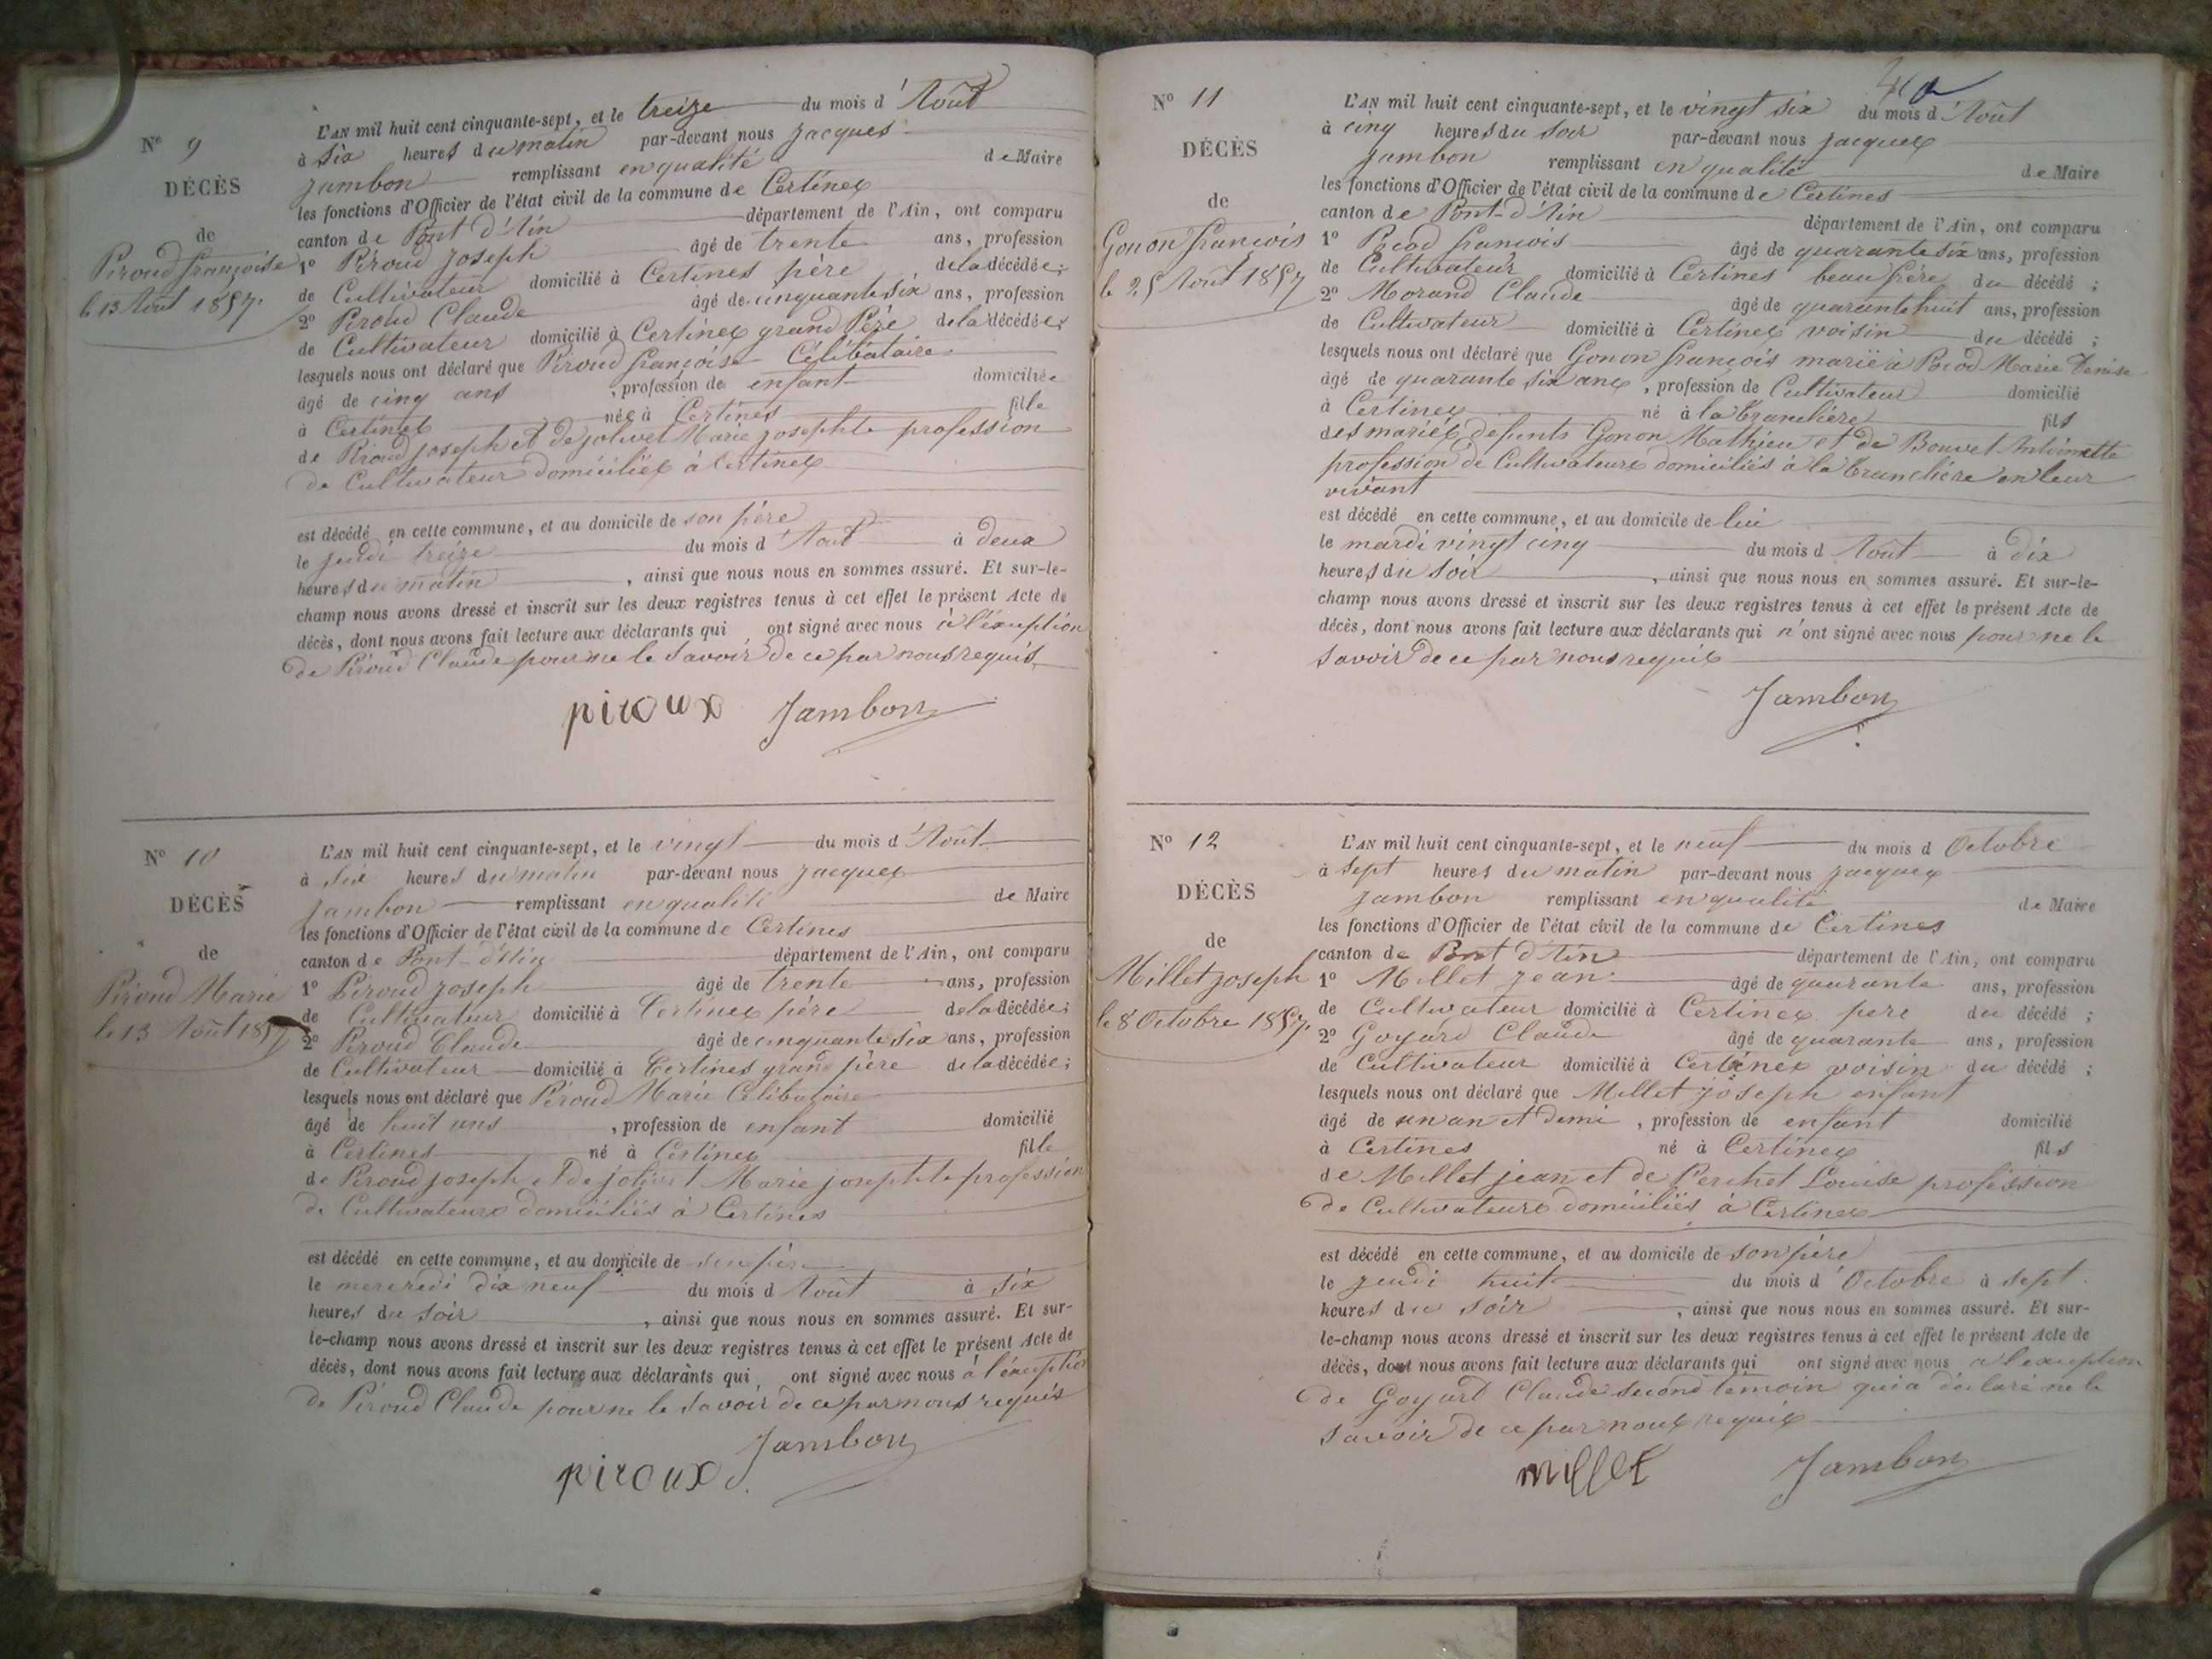 Nº 9
DÉCÈS
de
Piroud françoise
le 13 Août 1857.
L'AN mil huit cent cinquante-sept, et le treize du mois d'Août
à six heures du matin par-devant nous jacques
jambon remplissant en qualité de Maire
les fonctions d'Officier de l'état civil de la commune de Certinex
canton de Pont d'Ain département de l'Ain, ont comparu
1º Piroud joseph âgé de trente ans, profession
de Cultivateur domicilié à Certines père de la décédée;
2º Piroud Claude âgé de cinquante six ans, profession
de Cultivateur domicilié à Certinex grand Père de la décédée;
lesquels nous ont déclaré que Piroud françoise Célibataire
âgé de cinq ans, profession de enfant domiciliée
à Certinex née à Certines fille
de Piroud joseph et de jolivet Marie josephte profession
de Cultivateur domiciliéx à Certinex
est décédé en cette commune, et au domicile de son père
le jeudi treize du mois d'Août à deux
heures du matin, ainsi que nous nous en sommes assuré. Et sur-le-
champ nous avons dressé et inscrit sur les deux registres tenus à cet effet le présent Acte de
décès, dont nous avons fait lecture aux déclarants qui ont signé avec nous à l'éxeption
de Piroud Claude pour ne le savoir de ce par nous requis
piroux Jambon
Nº 10
DÉCÈS
de
Piroud Marie
le 13 Août 1857
L'AN mil huit cent cinquante-sept, et le vingt du mois d'Août
à six heures du matin par-devant nous jacquex
jambon remplissant en qualité de Maire
les fonctions d'Officier de l'état civil de la commune de Certines
canton de Pont-d'Ain département de l'Ain, ont comparu
1º Piroud joseph âgé de trente ans, profession
de Cultivateur domicilié à Certinex père de la décédée;
2º Piroud Claude âgé de cinquante six ans, profession
de Cultivateur domicilié à Certines grand père de la décédée;
lesquels nous ont déclaré que Piroud Marie Célibataire
âgé de huit ans, profession de enfant domicilié
à Certines né à Certinex fille
de Piroud joseph et de jolivet Marie josephte profession
de Cultivateurs domiciliés à Certines
est décédé en cette commune, et au domicile de son père
le mercredi dix neuf du mois d Août à six
heures du soir, ainsi que nous nous en sommes assuré. Et sur-
le-champ nous avons dressé et inscrit sur les deux registres tenus à cet effet le présent Acte de
décès, dont nous avons fait lecture aux déclarants qui ont signé avec nous à l'éxeption
de Piroud Claude pour ne le savoir de ce par nous requis
Jambon
piroux
Nº 11
DÉCÈS
de
Gonon françois
le 25 Août 1857
L'AN mil huit cent cinquante-sept, et le vingt six du mois d'Août
à cinq heures du soir par-devant nous jacquex
jambon remplissant en qualité de Maire
les fonctions d'Officier de l'état civil de la commune de Certines
canton de Pont-d'Ain département de l'Ain, ont comparu
1º Pocod françois âgé de quarante six ans, profession
de Cultivateur domicilié à Certines beau frère du décédé;
2º Morand Claude âgé de quarante huit ans, profession
de Cultivateur domicilié à Certinex voisin du décédé;
lesquels nous ont déclaré que Gonon françois marié à Pocod Marie Denise
âgé de quarante six anx, profession de Cultivateur domicilié
à Certinex né à la Tranclière fils
des mariéx défunts Gonon Mathieu et de Bouvet Antoinette
profession de Cultivateurs domiciliés à la Tranclière en leur
vivant
est décédé en cette commune, et au domicile de lui
le mardi vingt cinq du mois d Août à dix
heures du soir, ainsi que nous nous en sommes assuré. Et sur-le-
champ nous avons dressé et inscrit sur les deux registres tenus à cet effet le présent Acte de
décès, dont nous avons fait lecture aux déclarants qui n'ont signé avec nous pour ne le
savoir de ce par nous requis
Jambon
Nº 12
DÉCÈS
de
Millet joseph
le 8 Octobre 1857.
L'AN mil huit cent cinquante-sept, et le neuf du mois d Octobre
à sept heures du matin par-devant nous jacquex
jambon remplissant en qualité de Maire
les fonctions d'Officier de l'état civil de la commune de Certines
canton de Pont d'Ain département de l'Ain, ont comparu
1º Millet jean âgé de quarante ans, profession
de Cultivateur domicilié à Certinex père du décédé;
2º Goyard Claude âgé de quarante ans, profession
de Cultivateur domicilié à Certinex voisin du décédé;
lesquels nous ont déclaré que Millet joseph enfant
âgé de un an et demi, profession de enfant domicilié
à Certines né à Certinex fils
de Millet jean et de Perchet Louise profession
de Cultivateurs domiciliés à Certinex
est décédé en cette commune, et au domicile de son père
le jeudi huit du mois d'Octobre à sept
heures du soir, ainsi que nous nous en sommes assuré. Et sur-
le-champ nous avons dressé et inscrit sur les deux registres tenus à cet effet le présent Acte de
décès, dont nous avons fait lecture aux déclarants qui ont signé avec nous à l'exeption
de Goyard Claude second témoin qui a déclaré ne le
savoir de ce par nous requis
millet Jambon